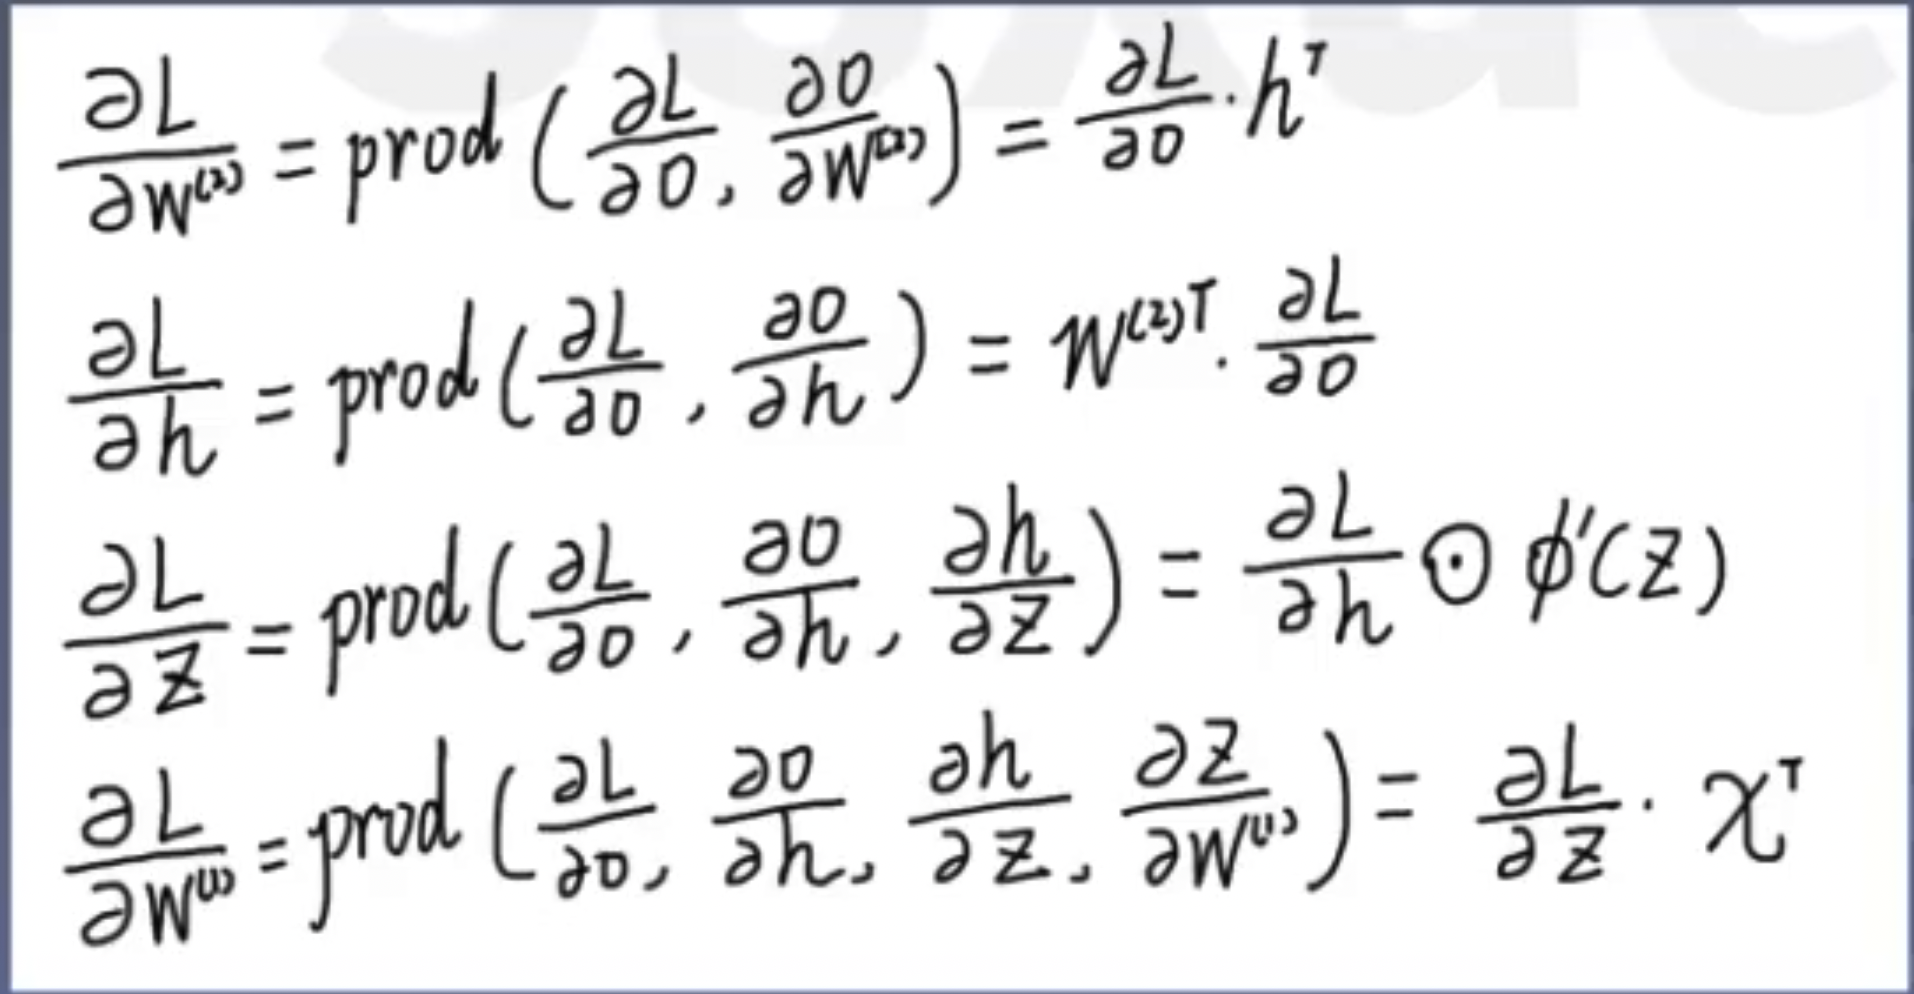 ∂L/∂W⁽²⁾ = prod (∂L/∂O, ∂O/∂W⁽²⁾) = ∂L/∂O · hᵀ
∂L/∂h = prod (∂L/∂O, ∂O/∂h) = W⁽²⁾ᵀ · ∂L/∂O
∂L/∂Z = prod (∂L/∂O, ∂O/∂h, ∂h/∂Z) = ∂L/∂h ⊙ ϕ′(Z)
∂L/∂W⁽¹⁾ = prod (∂L/∂O, ∂O/∂h, ∂h/∂Z, ∂Z/∂W⁽¹⁾) = ∂L/∂Z · xᵀ